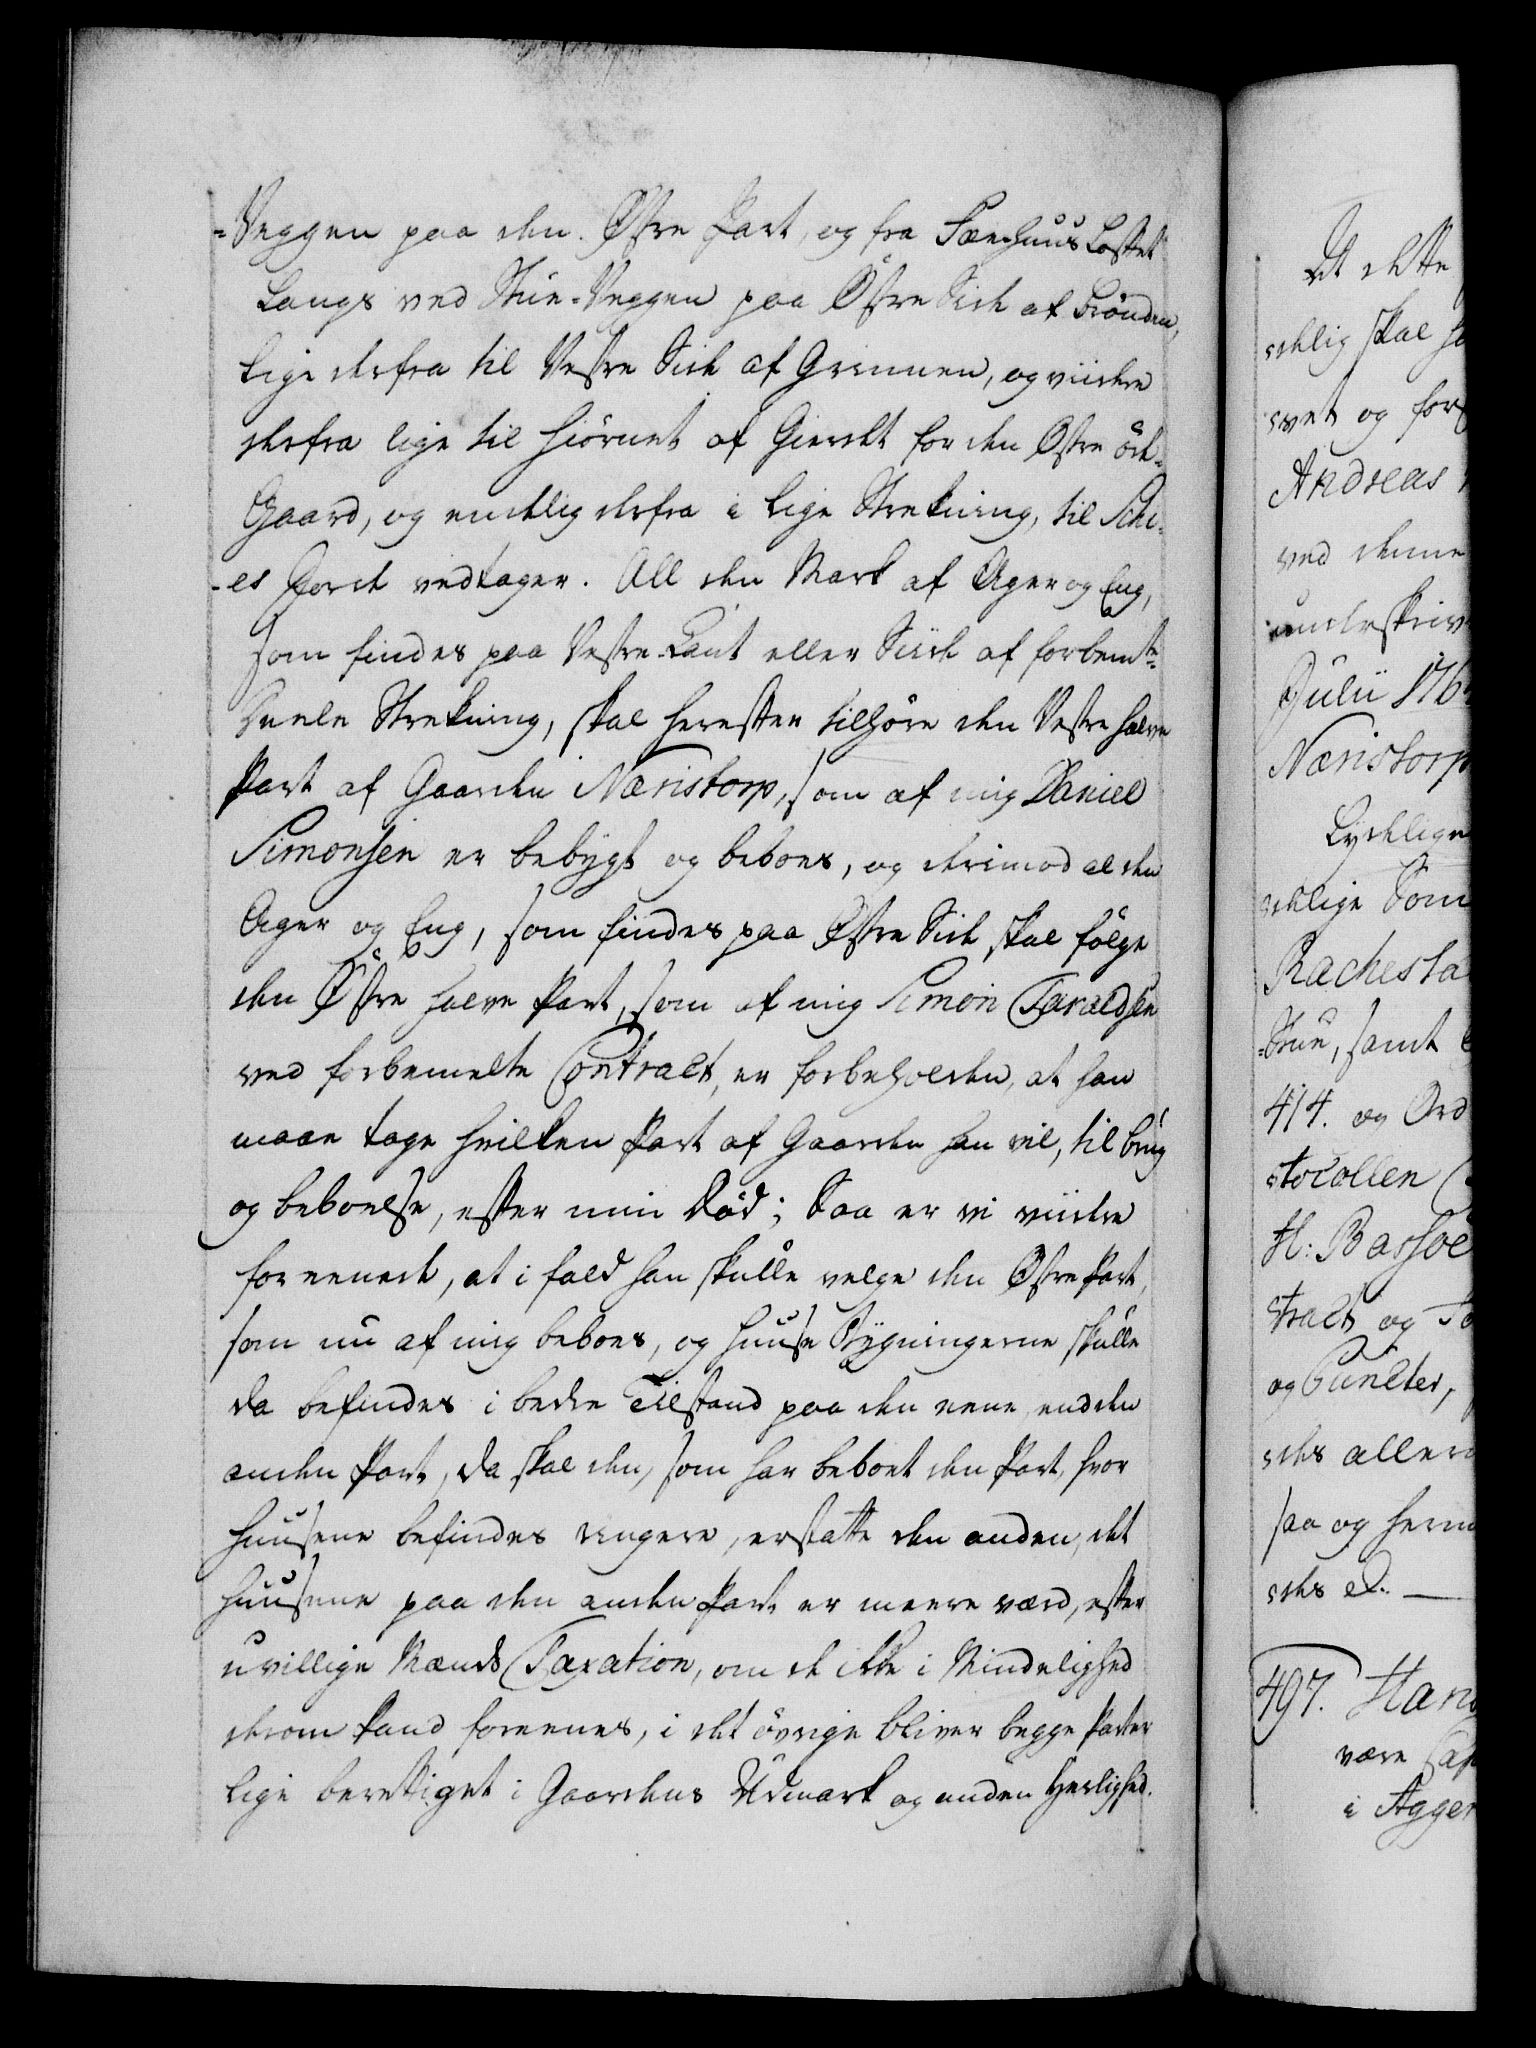 -Veggen paa den Østre Part, og fra Fæehuus Loftet
Langs ved Stue-Veggen paa Østre Side af Brönden,
lige derfra til Vestre Side af Grinnen, og viidere
derfra lige til Hiörnet af Gierdet for den Østre öde-
Gaard, og endelig derfra i lige Strekning, til
-es Jorde vedtager. All den Mark af Ager og Eng,
som findes paa Vestre-Kant eller Siide af forbemte
Heele Strekning, skal herefter tilhøre den Vestre halve
Part af Gaarden Næristorp, som af mig Daniel
Simonsen er bebygt og beboes, og derimod al den
Ager og Eng, som findes paa Østre Side skal fölge
den Østre halve Part, som af mig Simon Taraldsen
ved forbemelte Contract, er forbeholden, at han
maae tage hvilken Part af Gaarden han vil, til brug
og beboelse, efter min Död; Saa er vi viidere
foreenede, at i fald han skulle velge den Østre Part,
som nu af mig beboes, og Huuse Bygningerne skulle
da befindes i bedre Tilstand paa den eene, end den
anden Part, da skal den, som har beboet den Part, hvor
Huusene befindes ringere, erstatte den anden, det
Huusene paa den anden Part er meere værd, efter
uvillige Mænds Taxation, om de ikke i Mindelighed
derom kand foreenes, i det övrige bliver begge Parter
lige berettiget i Gaardens Udmark og anden Herlighed.
At dette
delig skal
svet og for
Andreas
ved denne
underskriv
Julii 176
Næristorp
Lydelig
delige Som
Rachesta
-Stue, samt
414. og Ord
stocollen
H: Bassöe
tract og
og Puncter,
des aller
saa og herm
des &c.
497. Han
være
i Agger